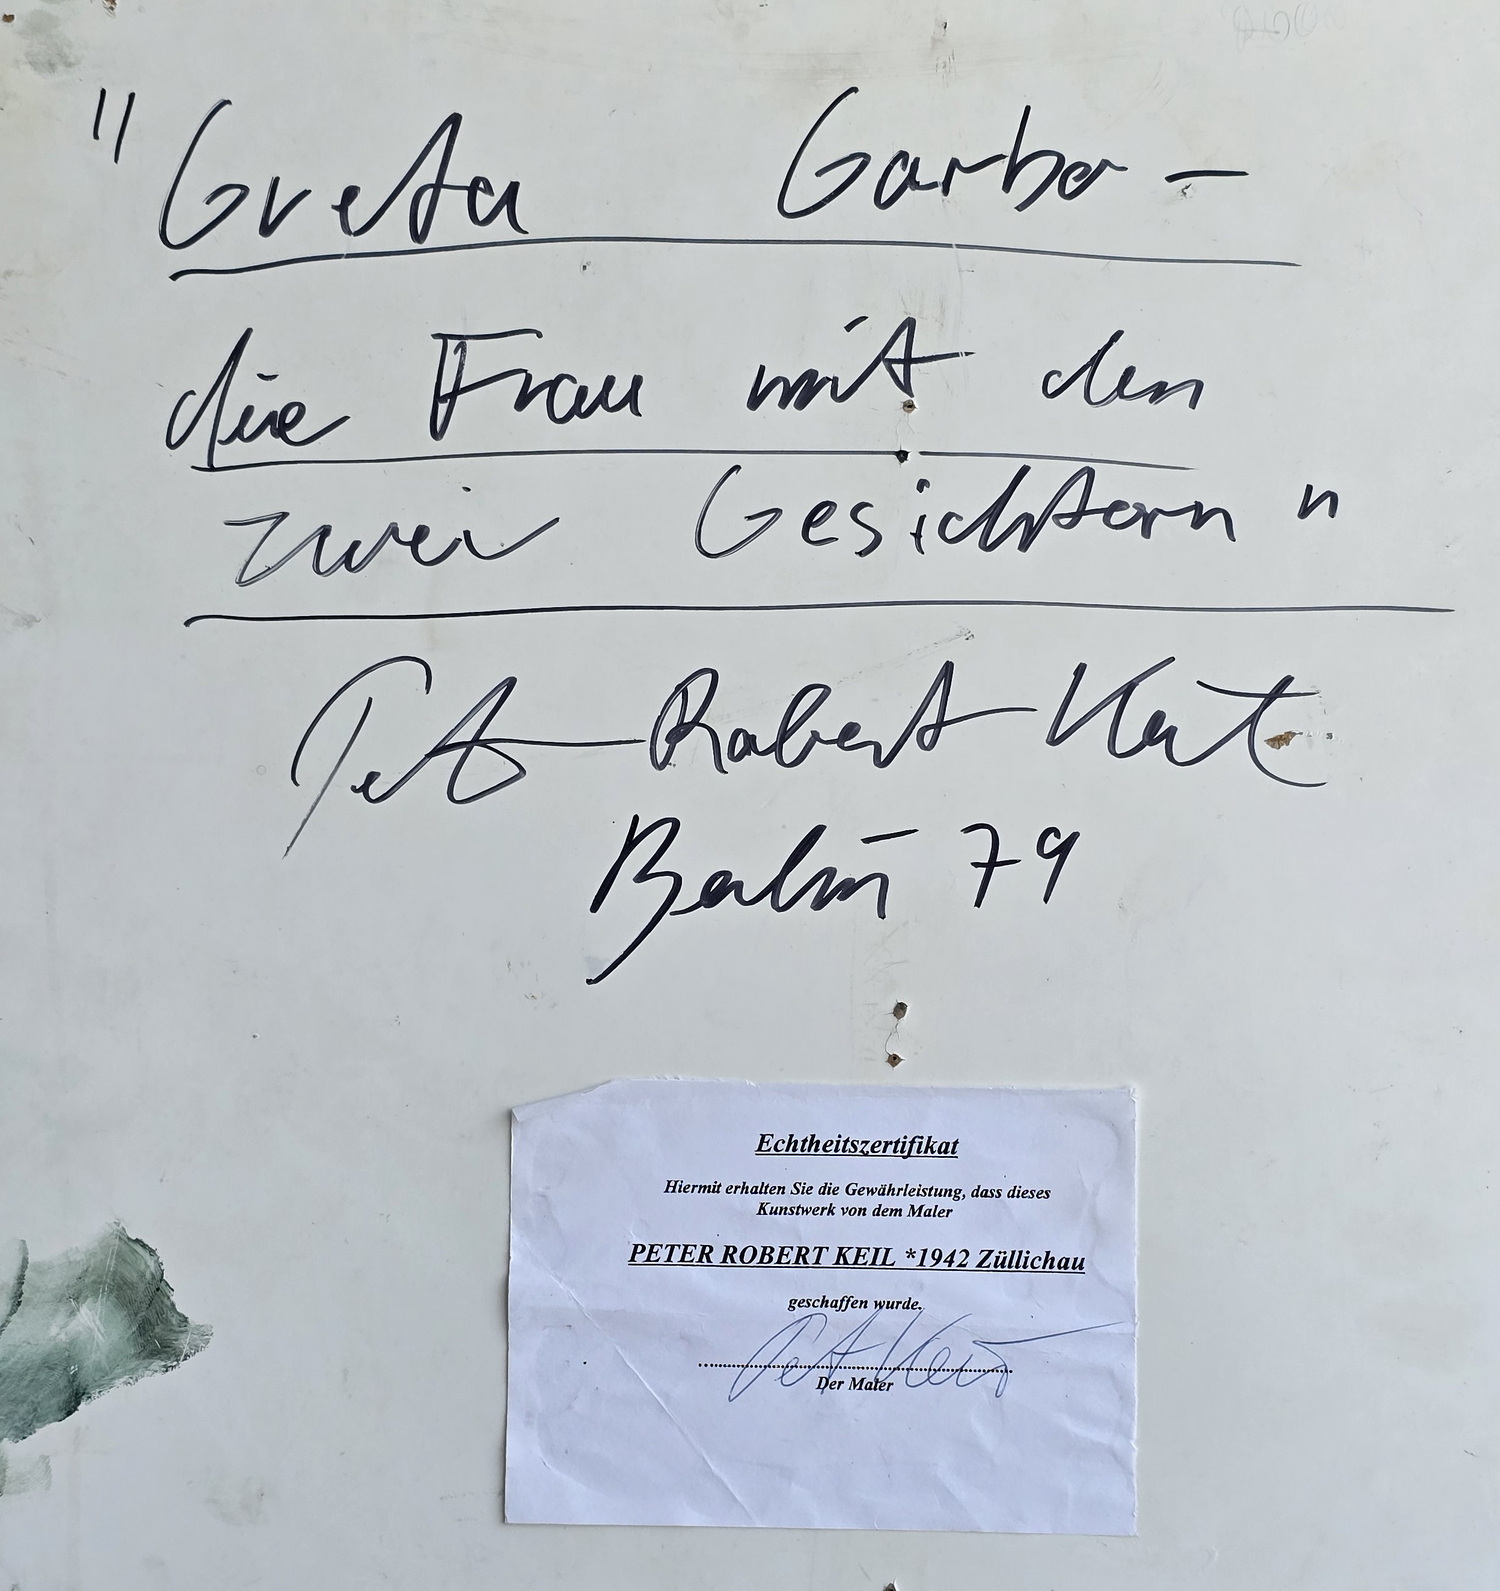 "Greta Garbo -
die Frau mit den
zwei Gesichtern"
Peter Robert Keil
Berlin 79
Echtheitszertifikat
Hiermit erhalten Sie die Gewährleistung, dass dieses
Kunstwerk von dem Maler
PETER ROBERT KEIL *1942 Züllichau
geschaffen wurde.
Der Maler